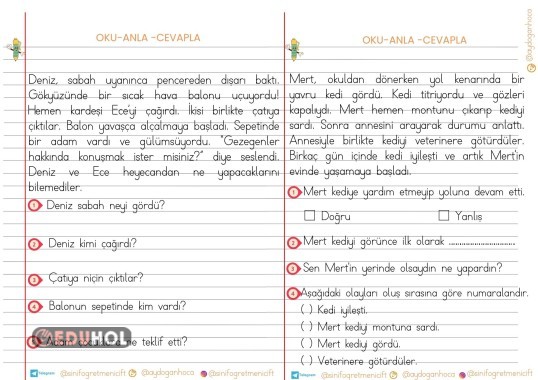 OKU-ANLA -CEVAPLA
Deniz, sabah uyanınca pencereden dışarı baktı.
Gökyüzünde bir sıcak hava balonu uçuyordu!
Hemen kardeşi Ece'yi çağırdı. İkisi birlikte çatıya
çıktılar. Balon yavaşça alçalmaya başladı. Sepetinde
bir adam vardı ve gülümsüyordu. "Gezegenler
hakkında konuşmak ister misiniz?" diye seslendi.
Deniz ve Ece heyecandan ne yapacaklarını
bilemediler.
1 Deniz sabah neyi gördü?
2 Deniz kimi çağırdı?
3 Çatıya niçin çıktılar?
4 Balonun sepetinde kim vardı?
EDUHOL
ne teklif etti?
@sinifogretmenicift
@aydoganhoca
OKU-ANLA -CEVAPLA
@aydoganhoca
Mert, okuldan dönerken yol kenarında bir
yavru kedi gördü. Kedi titriyordu ve gözleri
kapalıydı. Mert hemen montunu çıkarıp kediyi
sardı. Sonra annesini arayarak durumu anlattı.
Annesiyle birlikte kediyi veterinere götürdüler.
Birkaç gün içinde kedi iyileşti ve artık Mert'in
evinde yaşamaya başladı.
1 Mert kediye yardım etmeyip yoluna devam etti.
Doğru Yanlış
2 Mert kediyi görünce ilk olarak ..............................
3 Sen Mert'in yerinde olsaydın ne yapardın?
4 Aşağıdaki olayları oluş sırasına göre numaralandır.
( ) Kedi iyileşti.
( ) Mert kediyi montuna sardı.
( ) Mert kediyi gördü.
( ) Veterinere götürdüler.
Telegram @sinifogretmenicift @aydoganhoca @sinifogretmenicift